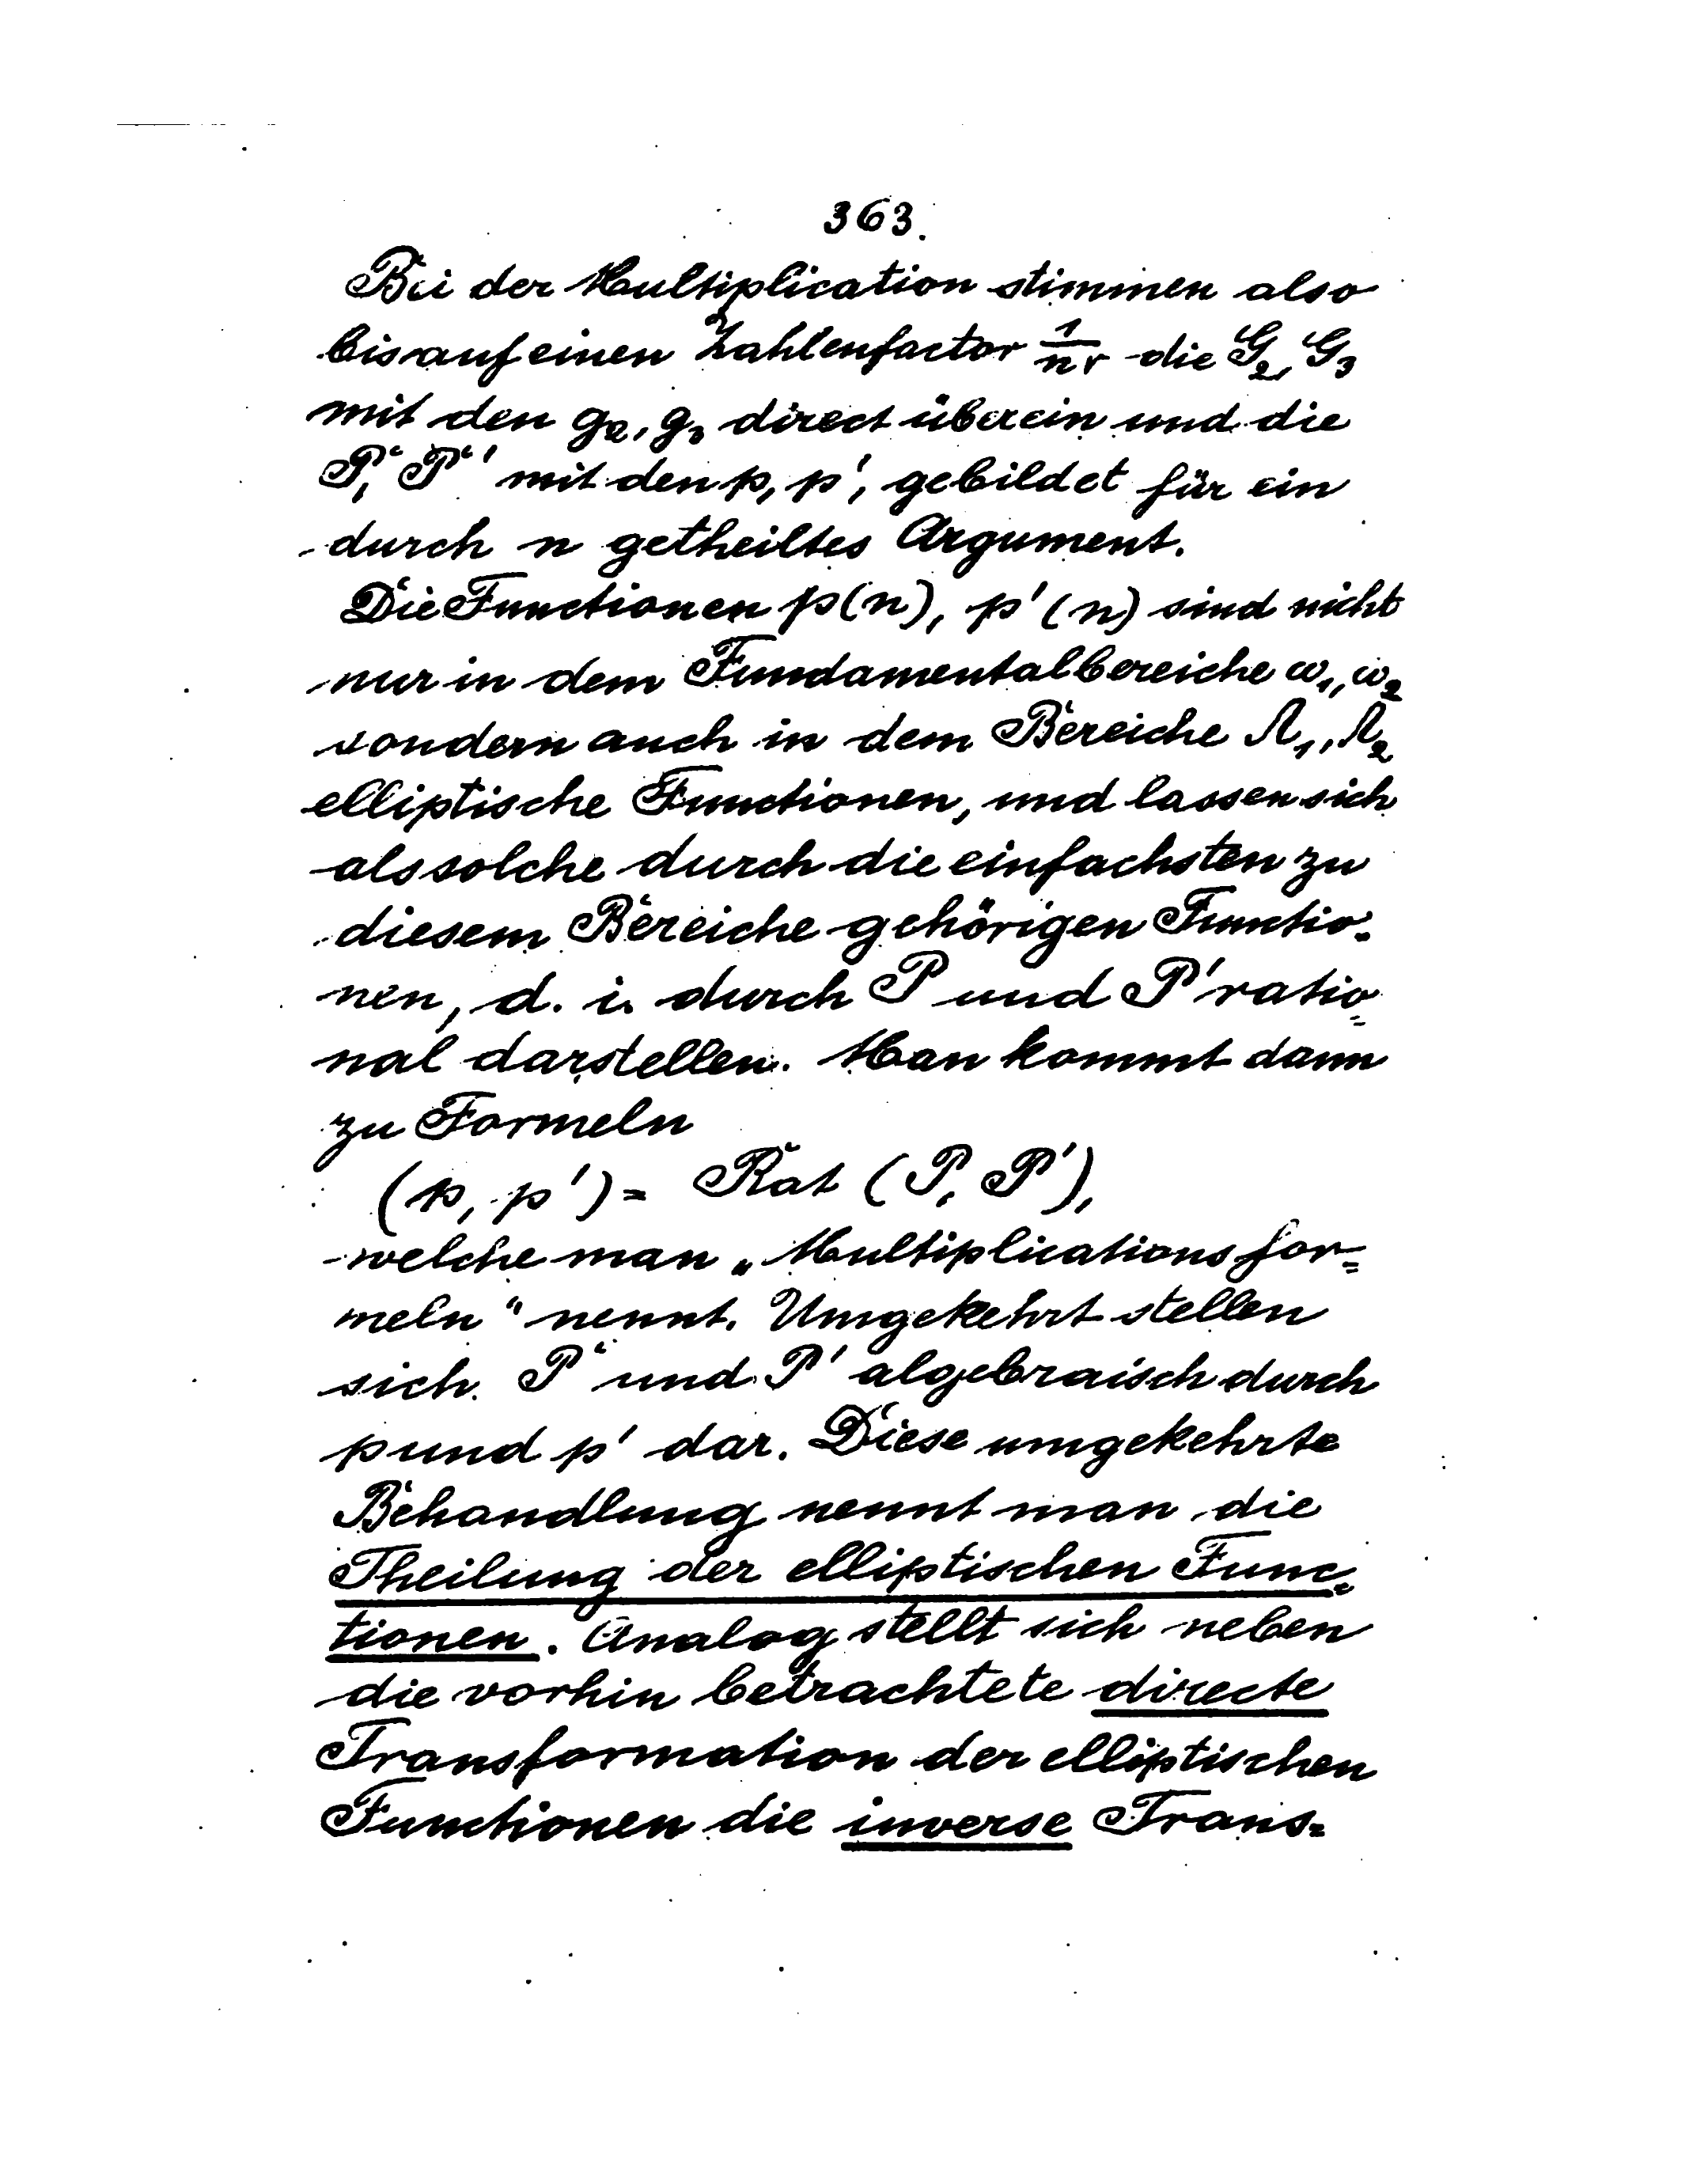 363.
Bei der Multiplication stimmen also
bis auf einen Zahlenfactor 1/n^r die G₂, G₃
mit den g₂, g₃ direct überein und die
P, P' mit den p, p', gebildet für ein
durch n getheiltes Argument.
Die Functionen p(u), p'(u) sind nicht
nur in dem Fundamentalbereiche ω₁, ω₂
sondern auch in dem Bereiche Ω₁, Ω₂
elliptische Functionen, und lassen sich
als solche durch die einfachsten zu
diesem Bereiche gehörigen Functio=
nen, d. i. durch P und P' ratio=
nal darstellen. Man kommt dann
zu Formeln
(p, p') = Rat (P, P'),
welche man „Multiplicationsfor=
meln" nennt. Umgekehrt stellen
sich P und P' algebraisch durch
p und p' dar. Diese umgekehrte
Behandlung nennt man die
Theilung der elliptischen Func=
tionen. Analog stellt sich neben
die vorhin betrachtete directe
Transformation der elliptischen
Functionen die inverse Trans=